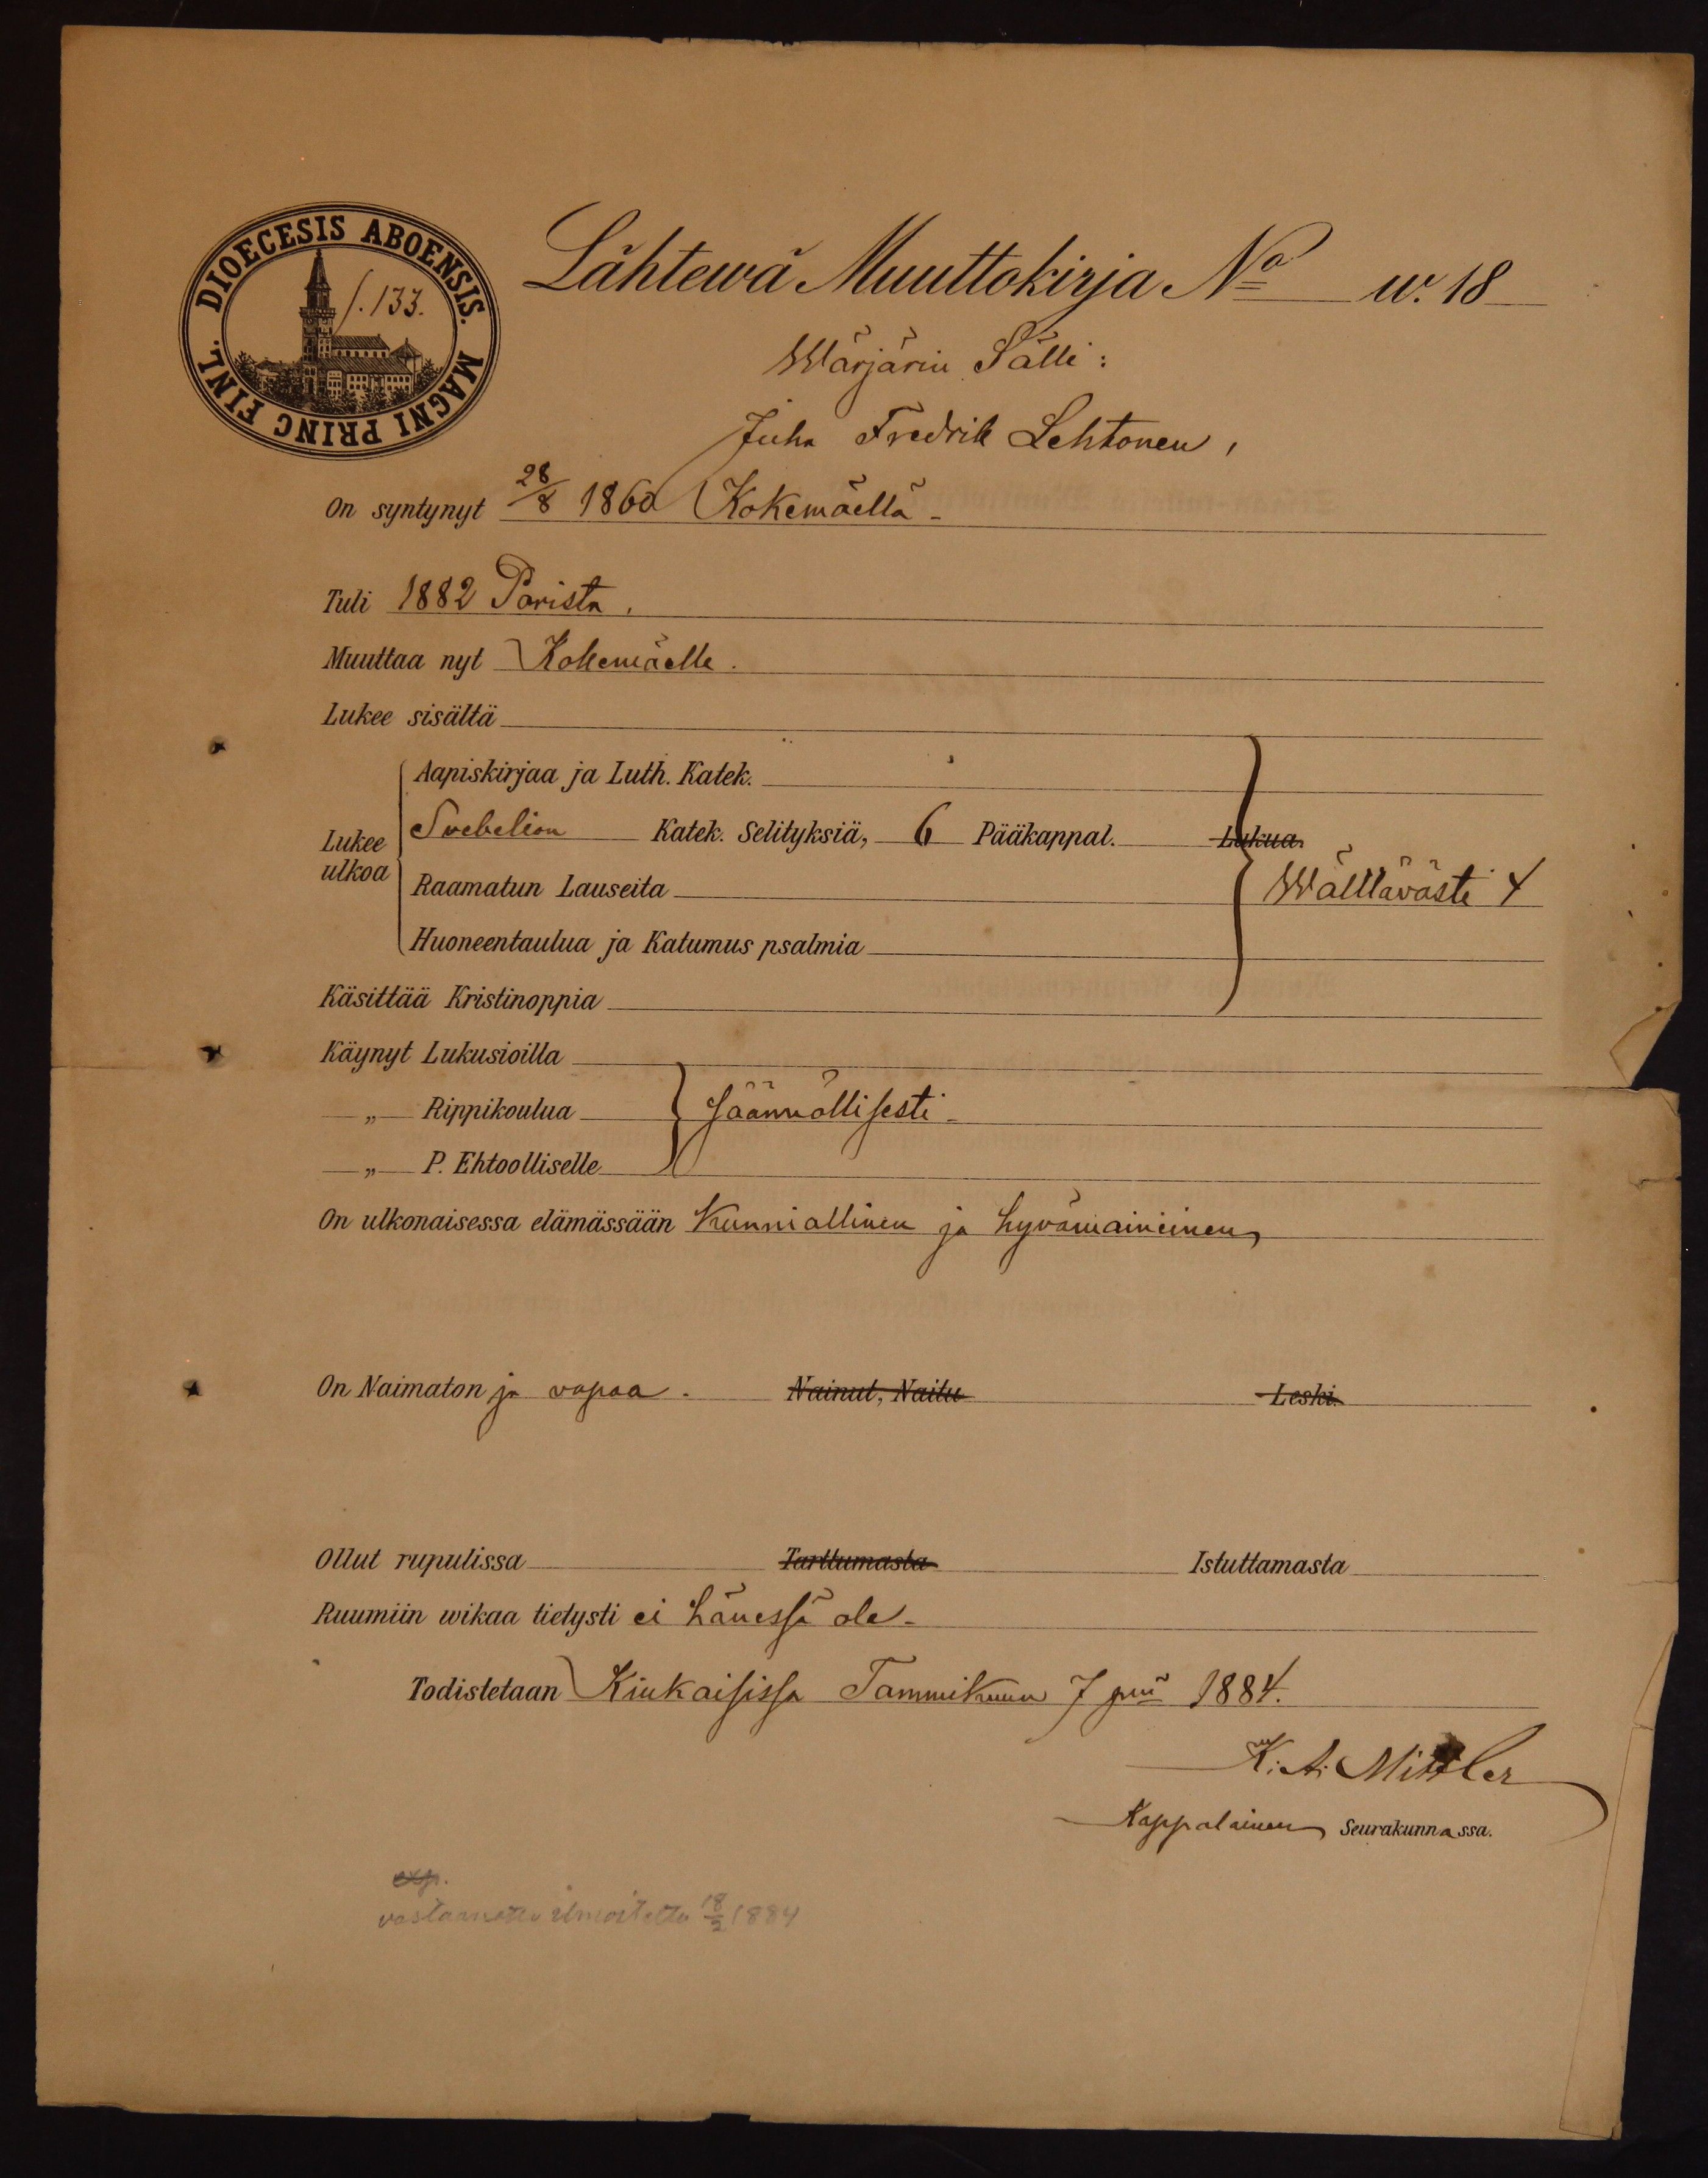 DIOECESIS ABOENSIS. MAGNI PRINC FINL.
s. 133.
Lähtewä Muuttokirja No w. 18
Wärjärin Sälli:
Juha Fredrik Lehtonen,
On syntynyt 28/8 1860 Kokemäellä -
Tuli 1882 Porista.
Muuttaa nyt Kokemäelle.
Lukee sisältä
Aapiskirjaa ja Luth. Katek.
Lukee ulkoa
Svebelion Katek. Selityksiä, 6 Pääkappal. Lukua.
Raamatun Lauseita
Wälttävästi
Huoneentaulua ja Katumus psalmia
Käsittää Kristinoppia
Käynyt Lukusioilla
—„— Rippikoulua säännöllisesti -
—„— P. Ehtoolliselle
On ulkonaisessa elämässään Kunniallinen ja hyvämaineinen
On Naimaton ja vapaa. Nainut, Naitu Leski.
Ollut rupulissa Tarttumasta Istuttamasta
Ruumiin wikaa tietysti ei hänessä ole -
Todistetaan Kiukaisissa Tammikuun 7 pnä 1884.
K. A. Mittler
Kappalainen Seurakunnassa.
exp.
vastaanotettu ilmoitettu 18/2 1884